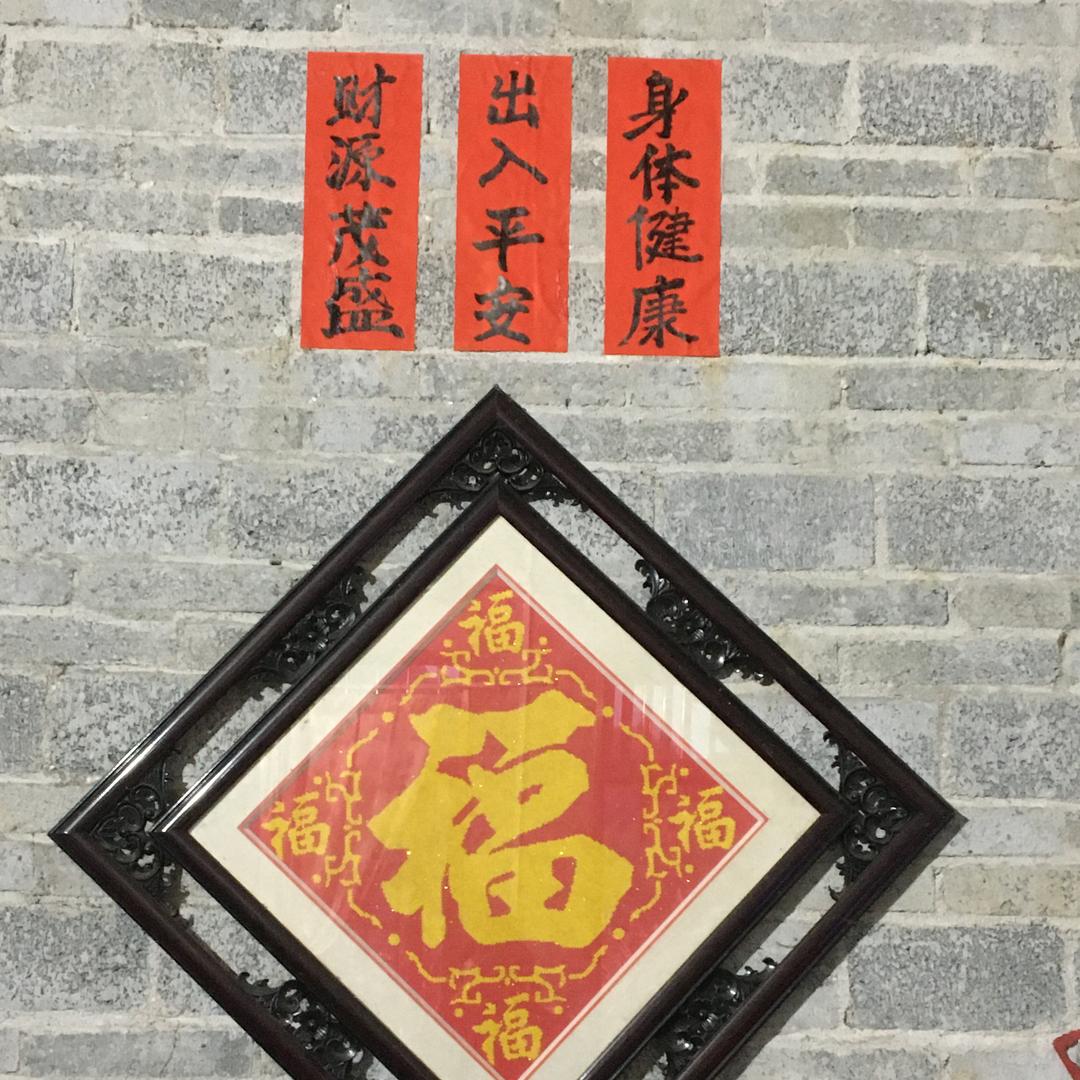 身体健康
出入平安
财源茂盛
福
福
福
福
福